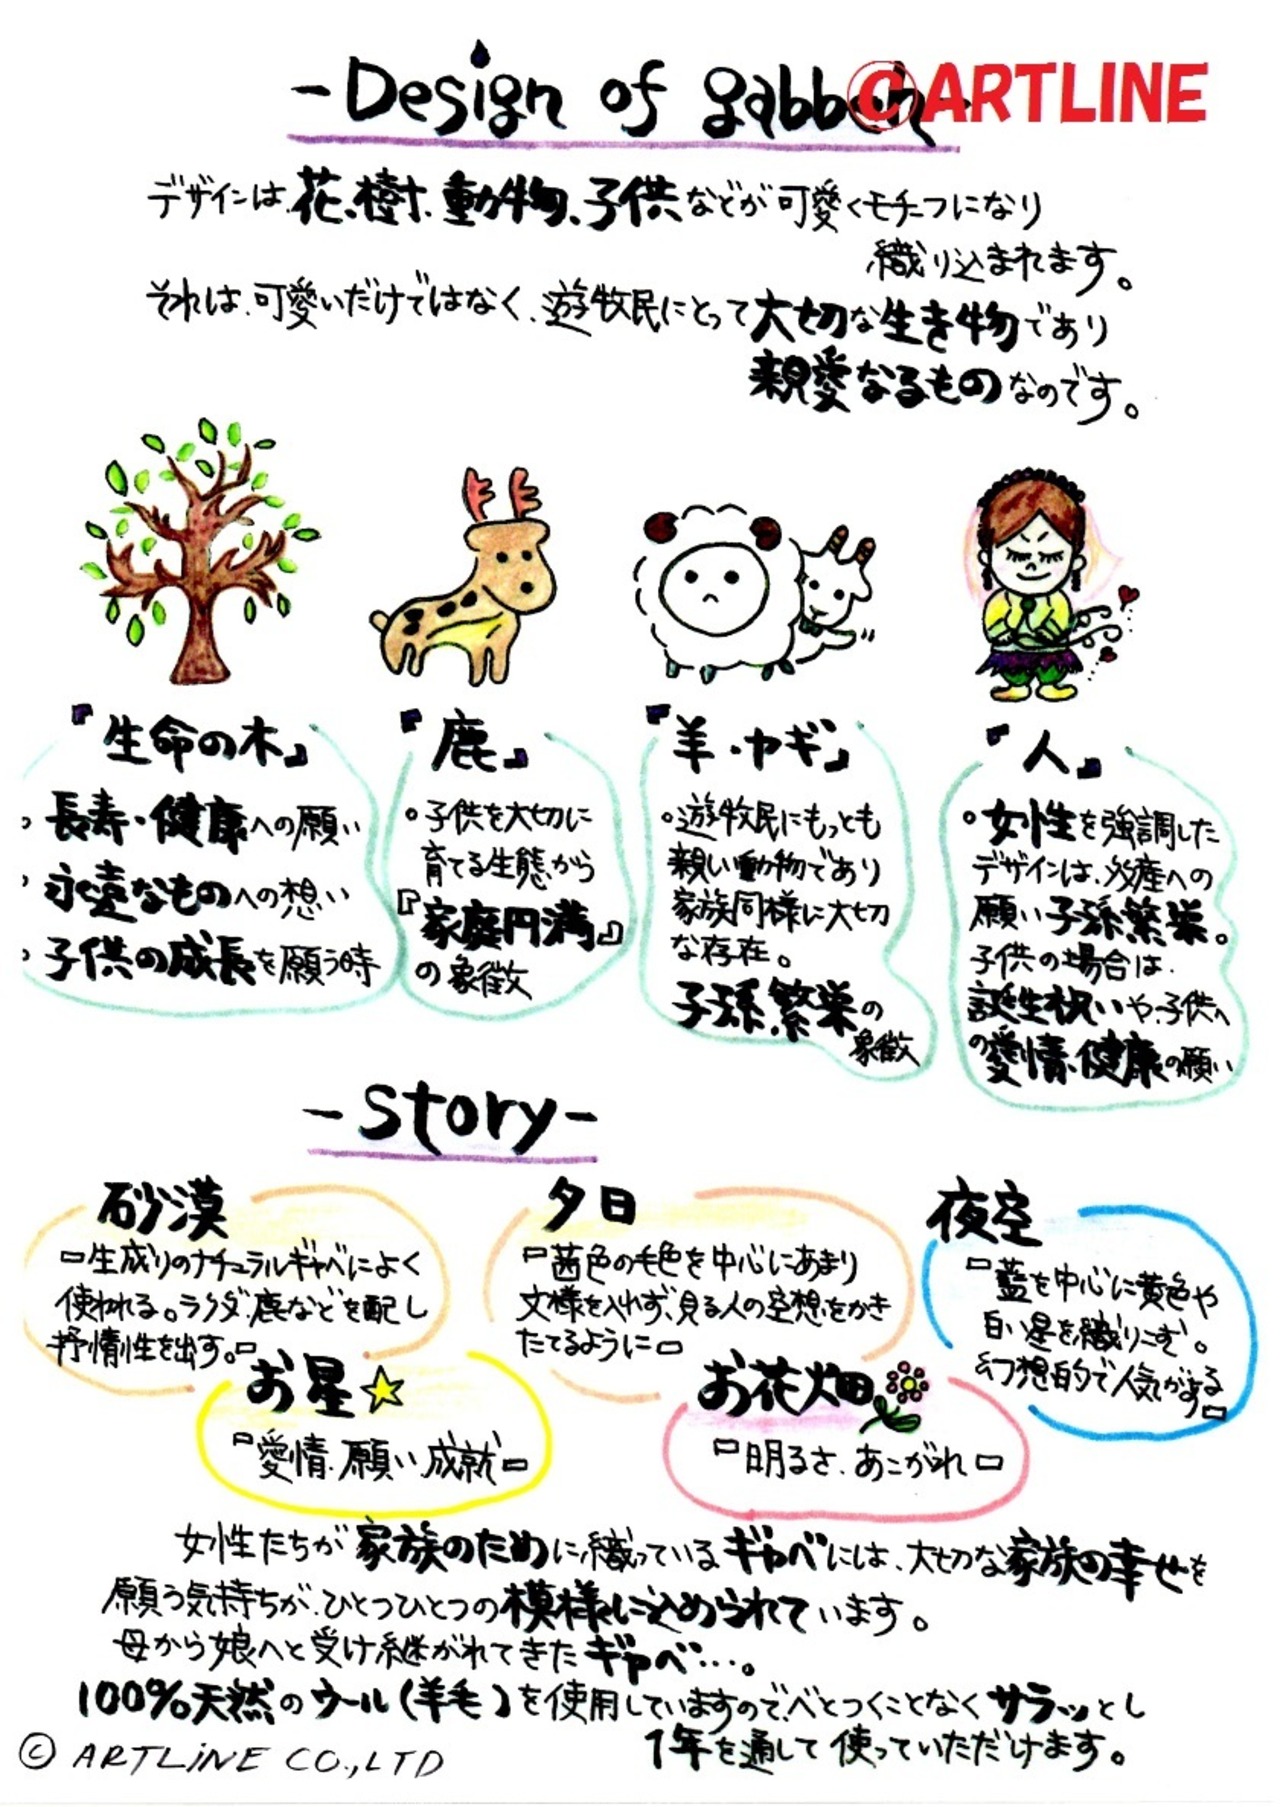 -Design of gabbeh-
©ARTLINE
デザインは、花、樹、動物、子供などが可愛くモチーフになり
織り込まれます。
それは、可愛いだけではなく、遊牧民にとって大切な生き物であり
親愛なるものなのです。
『生命の木』
・長寿・健康への願い
・永遠なものへの想い
・子供の成長を願う時
『鹿』
・子供を大切に
育てる生態から
『家庭円満』
の象徴
『羊・ヤギ』
・遊牧民にもっとも
親しい動物であり
家族同様に大切
な存在。
子孫繁栄の
象徴
『人』
・女性を強調した
デザインは、多産への
願い子孫繁栄。
子供の場合は、
誕生祝いや、子供へ
の愛情、健康の願い
-Story-
砂漠
『生成りのナチュラルギャベによく
使われる。ラクダ、鹿などを配し
抒情性を出す。』
夕日
『茜色の毛色を中心にあまり
文様を入れず、見る人の空想をかき
たてるように』
夜空
『藍を中心に黄色や
白い星を織りこむ。
幻想的で人気がある』
お星
『愛情、願い、成就』
お花畑
『明るさ、あこがれ』
女性たちが家族のために織っているギャベには、大切な家族の幸せを
願う気持ちが、ひとつひとつの模様に込められています。
母から娘へと受け継がれてきたギャベ…。
100%天然のウール(羊毛)を使用していますので、べとつくことなくサラッとし
1年を通して使っていただけます。
© ARTLINE CO.,LTD